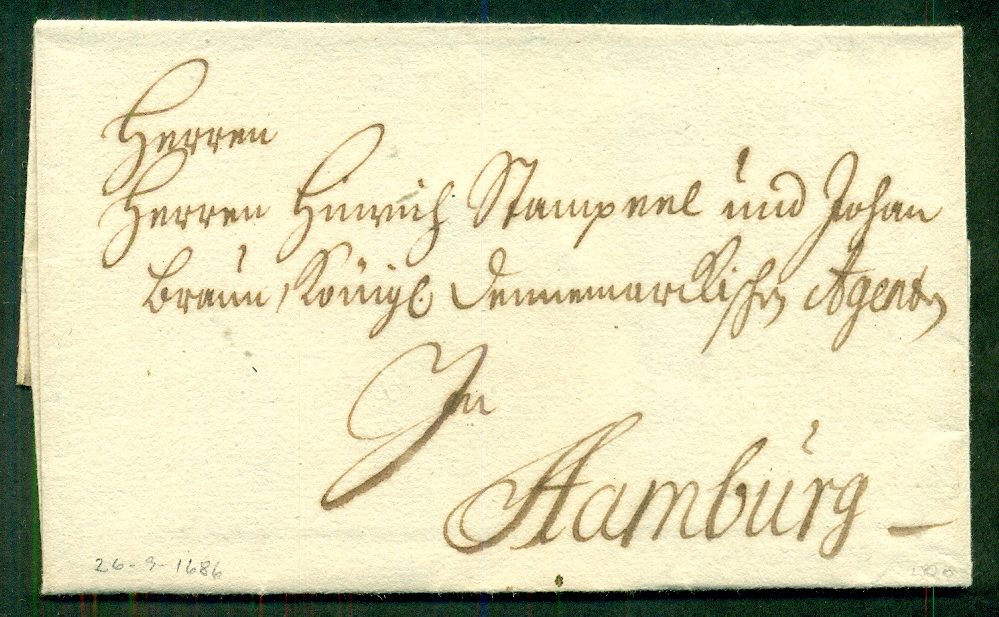 Herren
Herren Hinrich Stampeel und Johan
Braun, Königl. Dennemarckischen Agenten
In
Hamburg
26-9-1686